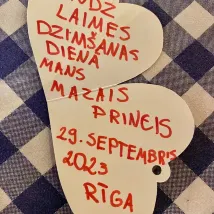 LAIMES
DZIMŠANAS
DIENĀ
MANS
MAZAIS
PRINCIS
29. SEPTEMBRIS
2023
RĪGA